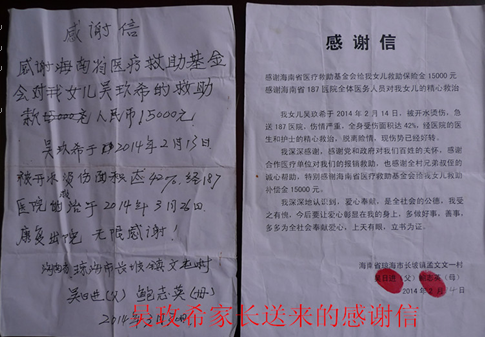 感谢信
感谢海南省医疗救助基金
会对我女儿吴玫希的救助
款 人民币15000元
吴玫希于 2014年2月13日
被开水烫伤面积达42%,经187
医院 治于2014年3月26日
康复出院 无限感谢!
琼海市长坡镇文
吴日进(父) 鲍志英(母)
2014年3月
感谢信
感谢海南省医疗救助基金会给我女儿救助保险金 15000 元
感谢海南省 187 医院全体医务人员对我女儿的精心救治
我女儿吴玫希于 2014 年 2 月 14 日,被开水烫伤,急
送 187 医院,伤情严重,全身受伤面积达 42%,经医院的医
生和护士的精心救治,脱离险情,现伤势已经好转。
我深深感谢,感谢党和政府对我们百姓的关怀,感谢
合作医疗单位对我们的报销救助,也感谢全村兄弟叔侄的
诚心帮助,特别感谢海南省医疗救助基金会给我女儿救助
补偿金 15000 元。
我深深地认识到,爱心奉献,是全社会的公德,我受
之有愧,今后要让爱心彰显在我的身上,多做好事,善事,
多多为全社会奉献爱心,上天有眼,立书为证。
海南省琼海市长坡镇孟文文一村
(父) (母)
2014 年 3 月 日
吴玫希家长送来的感谢信